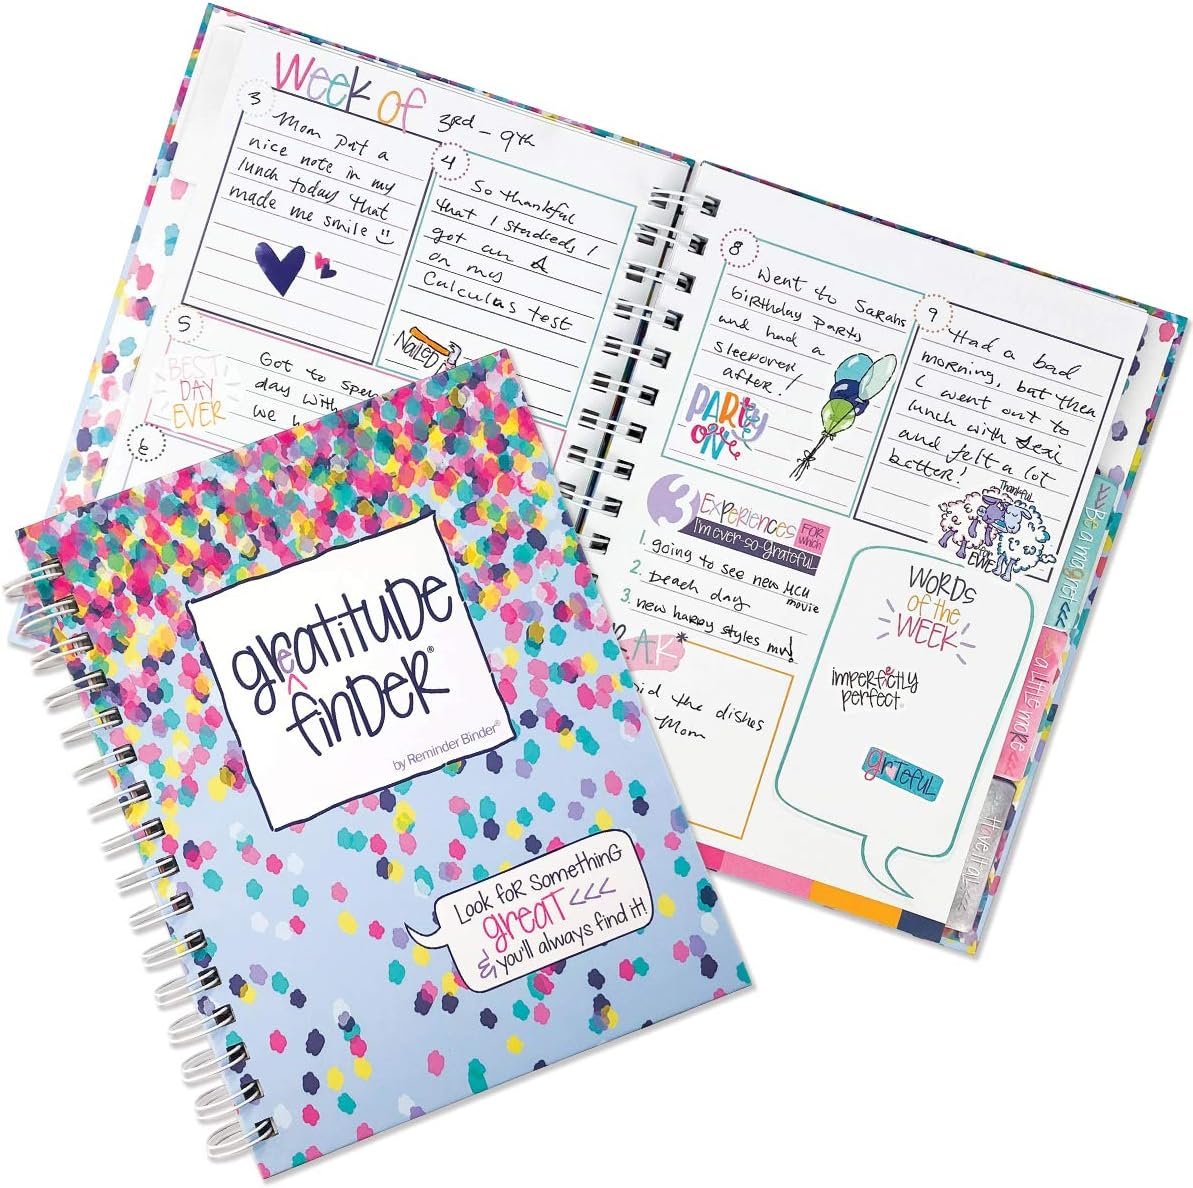 Week of 3rd - 9th
3
Mom put a
nice note in my
lunch today that
made me smile
4
So thankful
that I studied! I
got an A
on my
Calculus test
NaileD
5
BEST
DAY
EVER
Got to
day with
we
6
8
Went to Sarahs
birthday party
and had a
sleepover
after!
PARTY
ON
9
Had a bad
morning, but then
I went out to
lunch with Lexi
and felt a lot
better!
Thankful
for
EWE
3 EXPERIENCES FOR which
I'm ever-so-grateful
1. going to see new MCU
movie
2. beach day
3. new harry styles mv!
A.K*
the dishes
Mom
WORDS
of the
WEEK
imperfectly
perfect
grateful
Be a magnet
a little more
Have it all
greatitude
finder®
by Reminder Binder®
Look for something
great <<<
& you'll always find it!